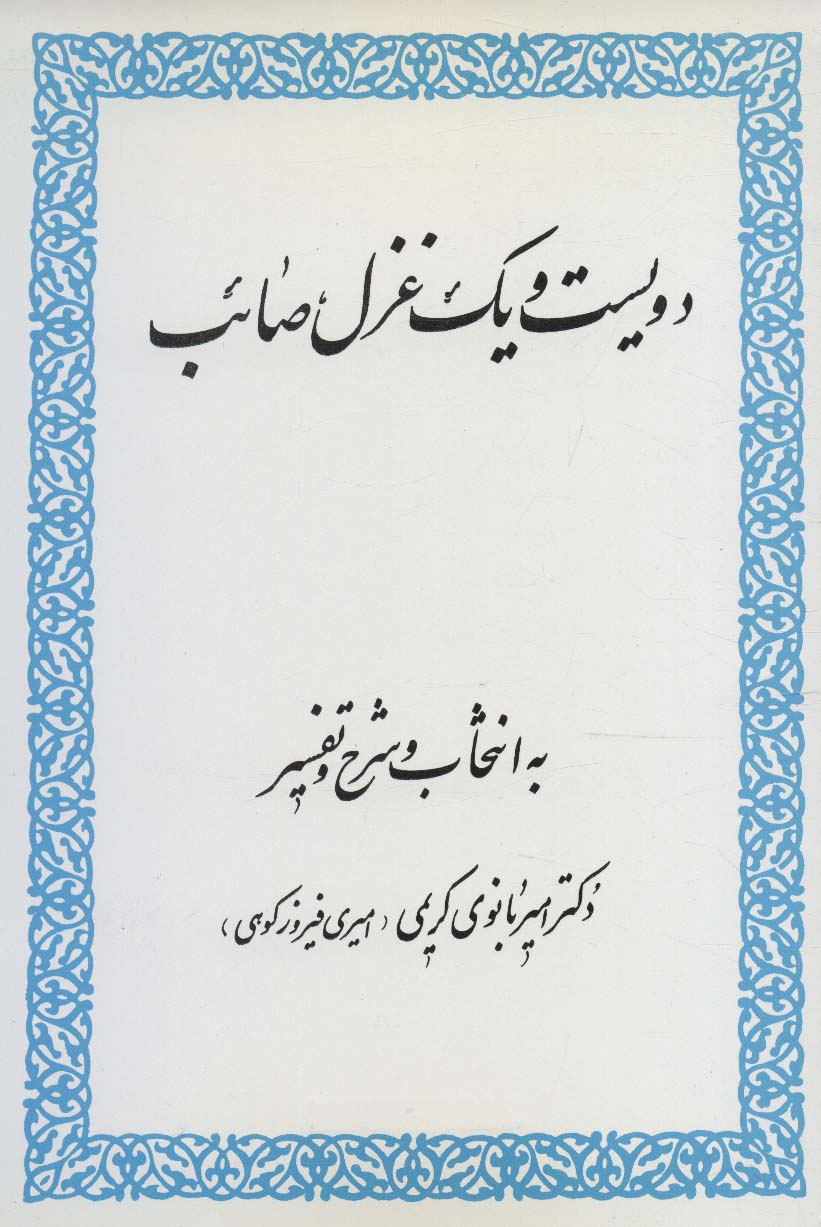 دویست و یک غزل صائب
به انتخاب و شرح و تفسیر
دکتر امیربانوی کریمی (امیری فیروزکوهی)